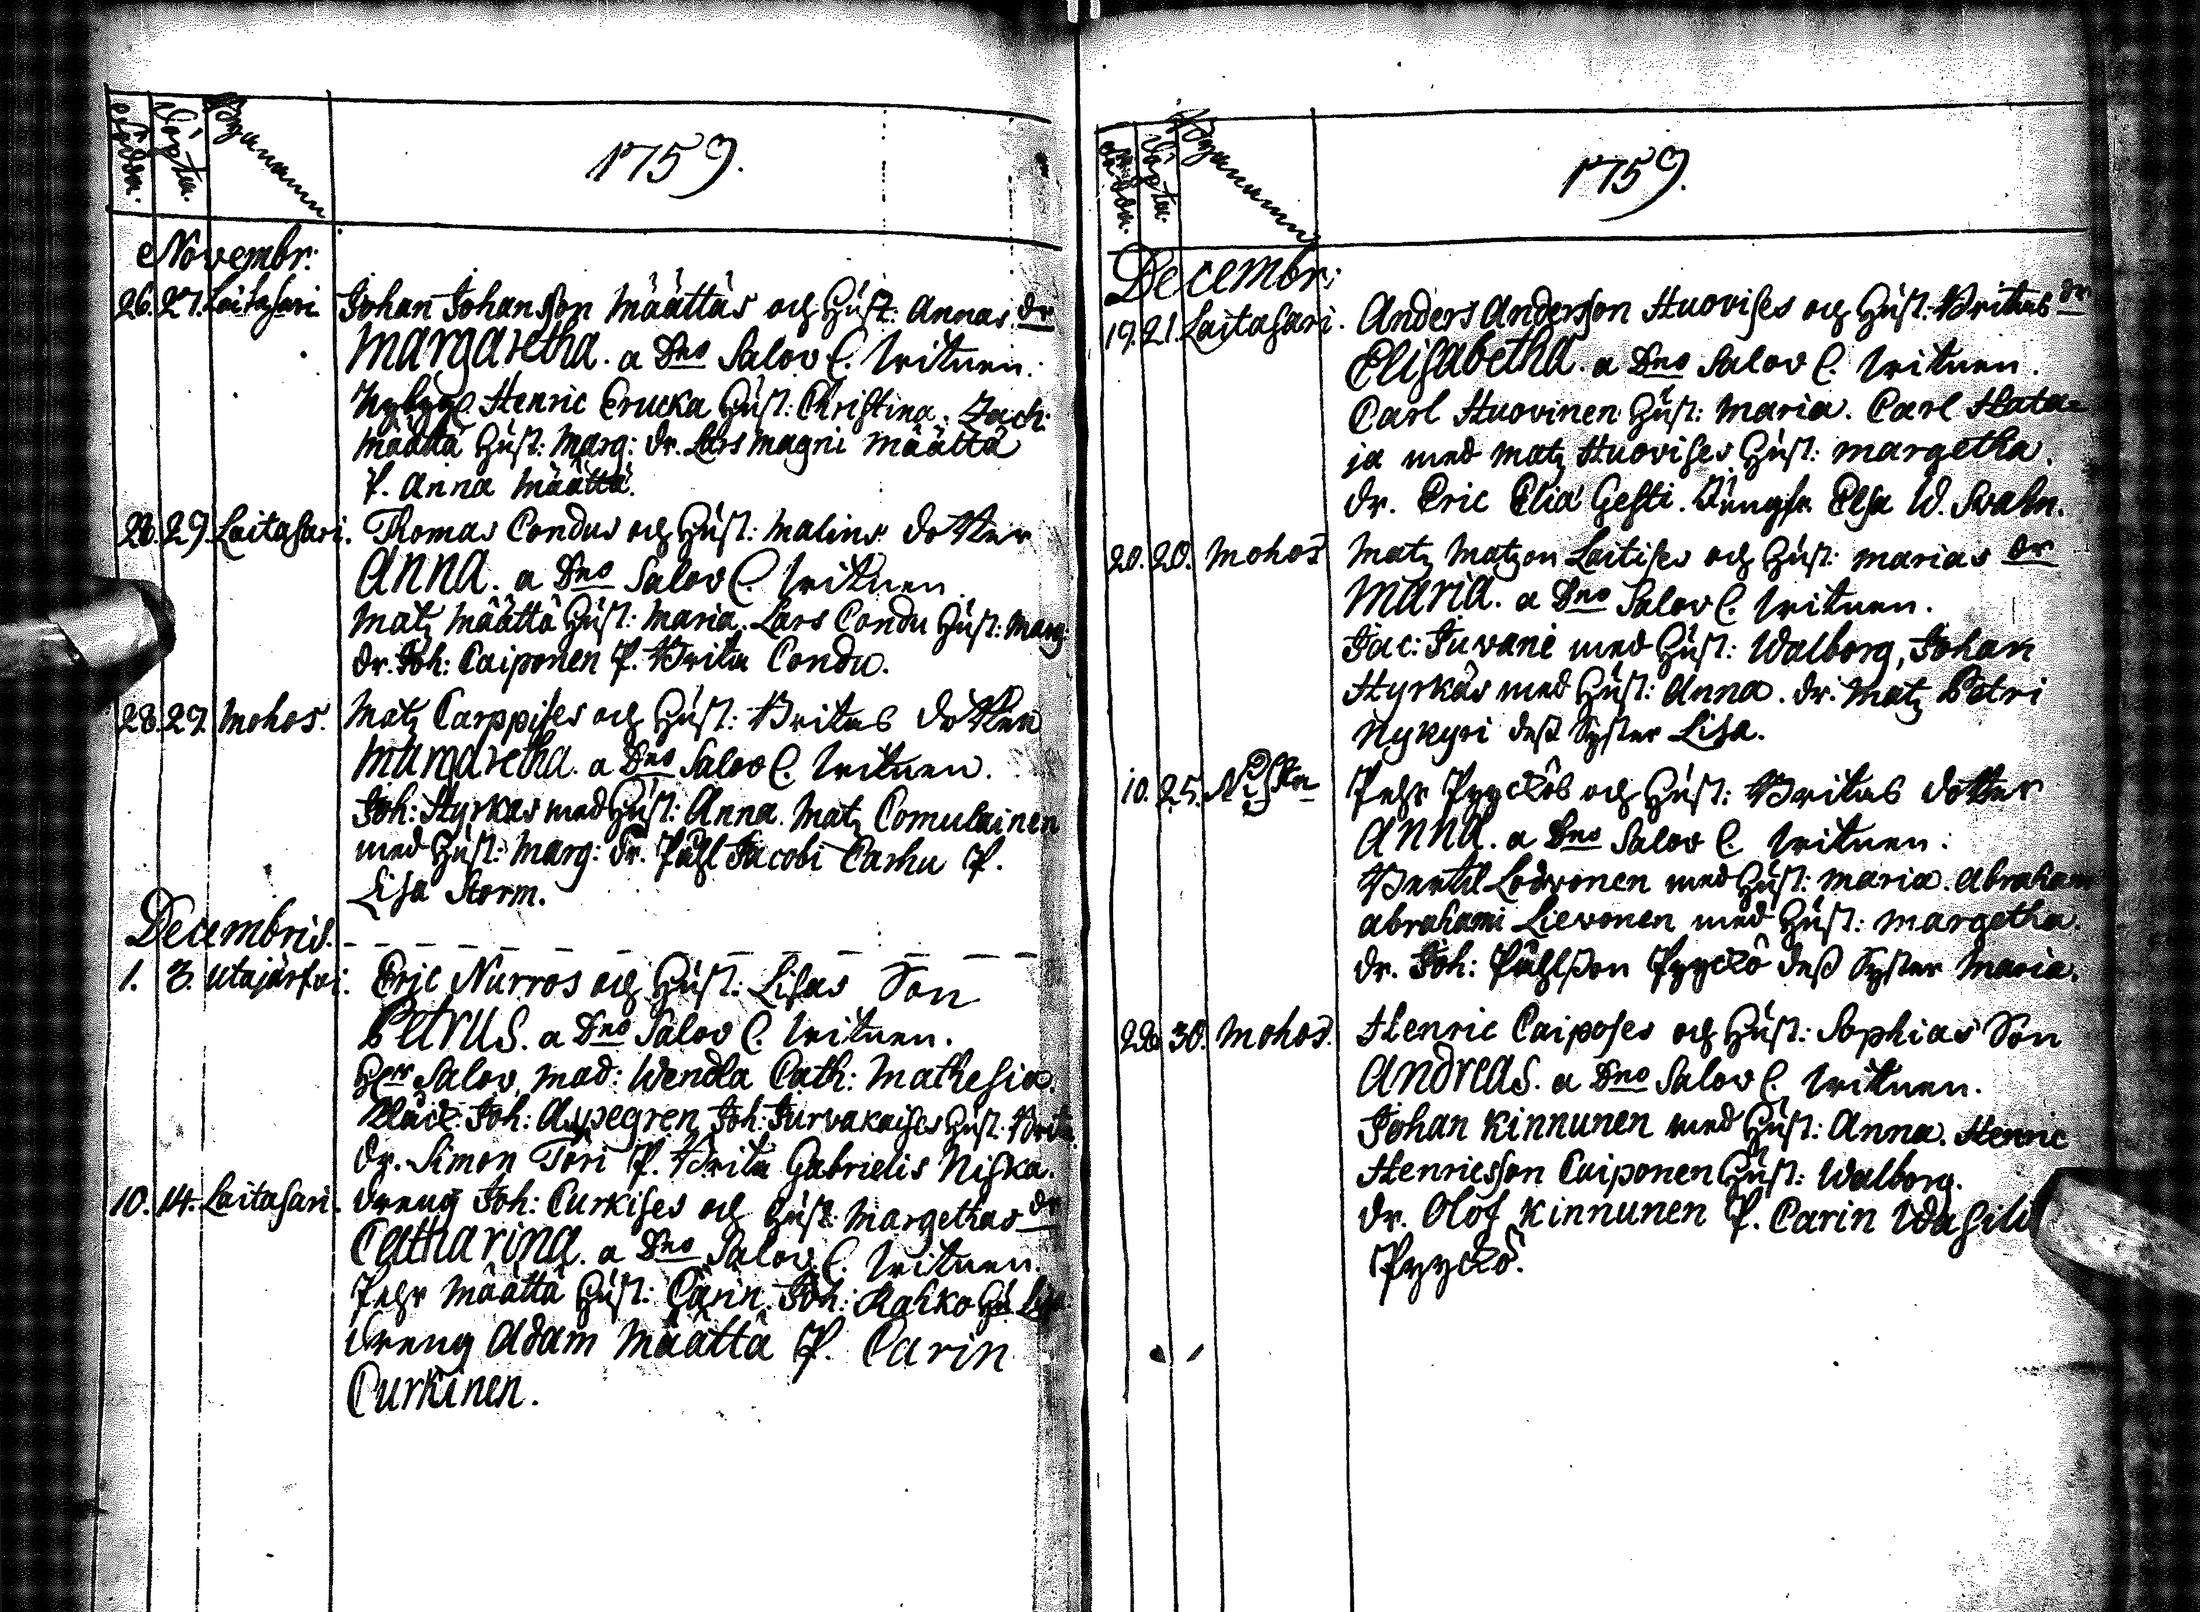 födda. döpta. Byanamn
1759.
Novembr:
26. 27. Laitasari Johan Johansson Määttäs och Hust: Annas dr
Margaretha. a Dno Salov C. Witnen.
Nybyg. Henric Crucka Hust: Christina. Zach:
Määttä Hust: Marg: dr. Lars Magni Määttä
P. Anna Määttä.
28. 29. Laitasari. Thomas Condus och Hust: Malins dotter
Anna. a Dno Salov C. Witnen.
Matz Määttä Hust: Maria. Lars Condu Hust: Marg:
dr. Joh: Caiponen P. Brita Condu.
28. 29. Mohos. Matz Carppises och Hust: Britas dotter
Margaretha. a Dno Salov C. Witnen.
Joh: Hyrkas med Hust: Anna. Matz Comulainen
med Hust: Marg: dr. Påhl Jacobi Carhu P.
Lisa Storm.
Decembris.
1. 3. Utajärfvi. Eric Nurros och Hust: Lisas Son
Petrus. a Dno Salov C. Witnen.
Herr Salov, Mad: Wendla Cath: Mathesia.
Klåck: Joh: Aspegren Joh: Turvakaises Hust: Brita
dr. Simon Töri P. Brita Gabrielis Niska.
10. 14. Laitasari. dreng Joh: Curkises och Hust: Margethas dr
Catharina. a Dno Salov C. Witnen.
Pehr Määttä Hust: Carin. Joh: Rahko Hu Lisa
dreng Adam Määttä P. Carin
Curkinen.
födda. döpta. Byanamn
1759.
Decembr:
19. 21. Laitasari. Anders Andersson Huovises och Hust: Britas dr
Elisabetha. a Dno Salov C. Witnen.
Carl Huovinen Hust: Maria. Carl Hata=
ja med Matz Huovises Hust: Margetha.
dr. Eric Eliæ Gesti. Jungfr Elsa W. Svahn.
20. 20. Mohos Matz Matzon Laitises och Hust: Marias dr
Maria. a Dno Salov C. Witnen.
Jac: Juvani med Hust: Walborg, Johan
Hyrkäs med Hust: Anna. dr. Matz Petri
Nykyri dess Syster Lisa.
10. 25. Niska Pehr Pyyckös och Hust: Britas dotter
Anna. a Dno Salov C. Witnen:
Bertil Lodvonen med Hust: Maria. Abraham
Abrahami Lievonen med Hust: Margetha.
dr. Joh: Påhlsson Pyyckö dess Syster Maria.
30. Mohos. Henric Caiposes och Hust: Sophias Son
Andreas. a Dno Salov C. Witnen.
Johan Kinnunen med Hust: Anna. Henric
Henricsson Caiponen Hust: Walborg.
dr. Olof Kinnunen P. Carin
Pyyckö.